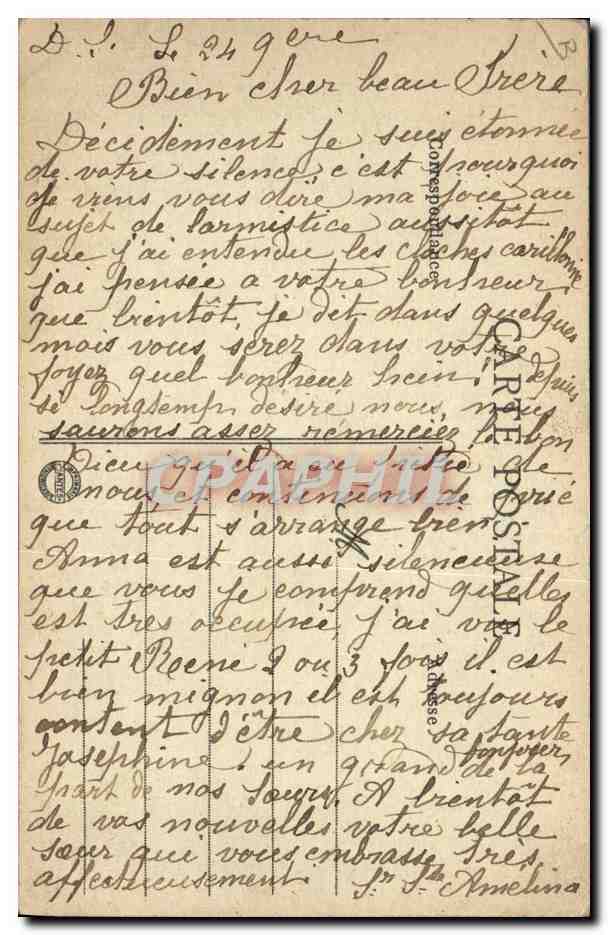 D. S. Le 24 9bre
Bien cher beau Frère
Décidément je suis étonnée
de votre silence c'est pourquoi
je viens vous dire ma joie au
sujet de larmistice aussitôt
que j'ai entendu les cloches carillonnées
j'ai pensée a votre bonheur
que bientôt, je dit dans quelques
mois vous serez dans votre
foyez quel bonheur hein! depuis
si longtemps désiré nous nous
saurons assez rémerciéz le bon
Dieu qu'il a eu pitié de
nous, et continuons de prié
que tout s'arrange bien
Anna est aussi silencieuse
que vous je comprend quelles
est très occupée, j'ai vu le
petit Réené 2 ou 3 fois il est
bien mignon il est toujours
content d'être chez sa tante
Joséphine. un grand bonjour de la
part de nos Sœurs, A bientôt
de vos nouvelles votre belle
sœur qui vous embrasse très
affectueusement. Sr Ste Amélina
CARTE POSTALE
Correspondance
Adresse
CPAPHIL
NANTES
B